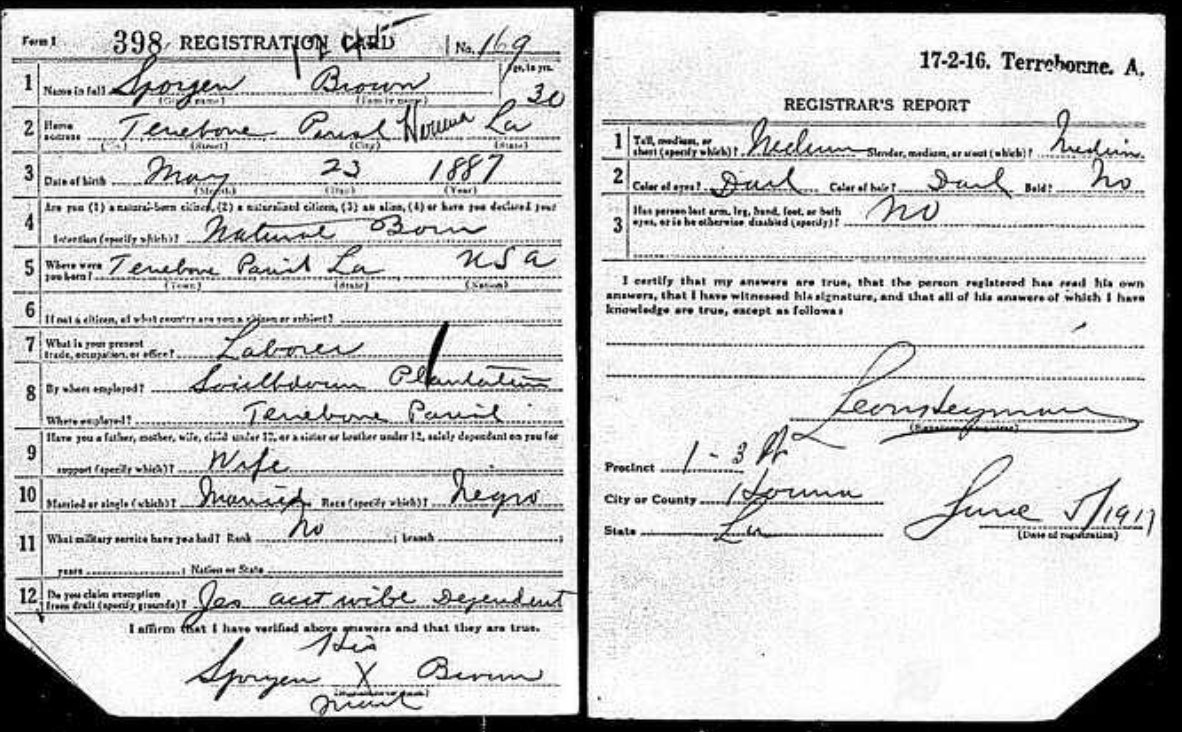 Form 1 398 REGISTRATION CARD No. 169
1 Name in full Sporgen Brown Age, in yrs. 30
(Given name) (Family name)
2 Home address Terebone Parish Houma La
(No.) (Street) (City) (State)
3 Date of birth May 23 1887
(Month) (Day) (Year)
4 Are you (1) a natural-born citizen, (2) a naturalized citizen, (3) an alien, (4) or have you declared your
intention (specify which)? Natural Born
5 Where were you born? Terebone Parish La USA
(Town) (State) (Nation)
6 If not a citizen, of what country are you a citizen or subject?
7 What is your present trade, occupation, or office? Laborer
8 By whom employed? Southdown Plantation
Where employed? Terebone Parish
9 Have you a father, mother, wife, child under 12, or a sister or brother under 12, solely dependent on you for
support (specify which)? Wife
10 Married or single (which)? Married Race (specify which)? Negro
11 What military service have you had? Rank No ; branch ;
years ; Nation or State
12 Do you claim exemption from draft (specify grounds)? Yes wife Dependent
I affirm that I have verified above answers and that they are true.
His
Sporgen X Brown
mark
17-2-16. Terrebonne. A.
REGISTRAR'S REPORT
1 Tall, medium, or short (specify which)? Medium Slender, medium, or stout (which)? Medium
2 Color of eyes? Dark Color of hair? Dark Bald? No
3 Has person lost arm, leg, hand, foot, or both eyes, or is he otherwise disabled (specify)? No
I certify that my answers are true, that the person registered has read his own
answers, that I have witnessed his signature, and that all of his answers of which I have
knowledge are true, except as follows:
Leon Heyman
(Signature of registrar)
Precinct 1-3
City or County Houma
State La
June 5/1917
(Date of registration)